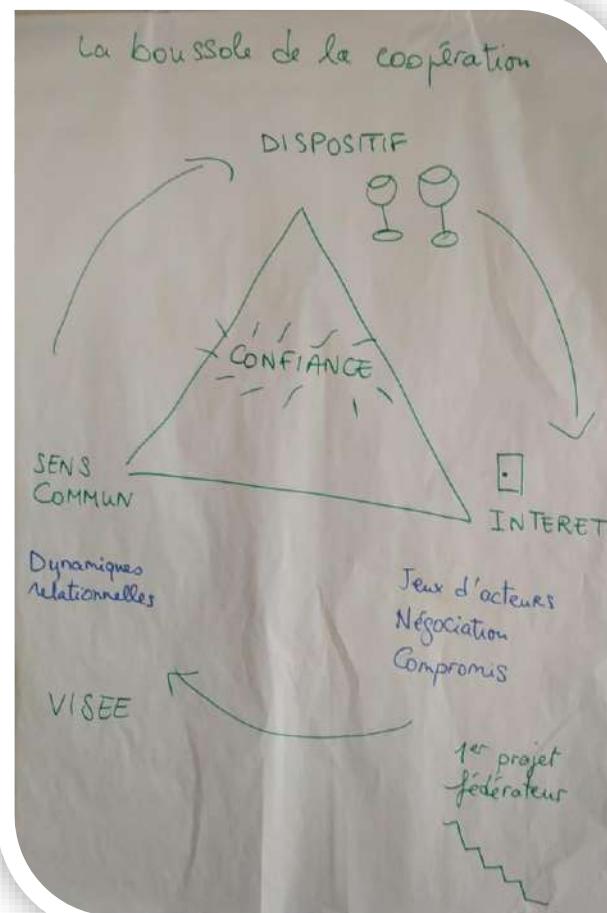 La boussole de la coopération
DISPOSITIF
CONFIANCE
SENS
COMMUN
INTERET
Dynamiques
relationnelles
Jeux d'acteurs
Négociation
Compromis
VISEE
1er projet
fédérateur